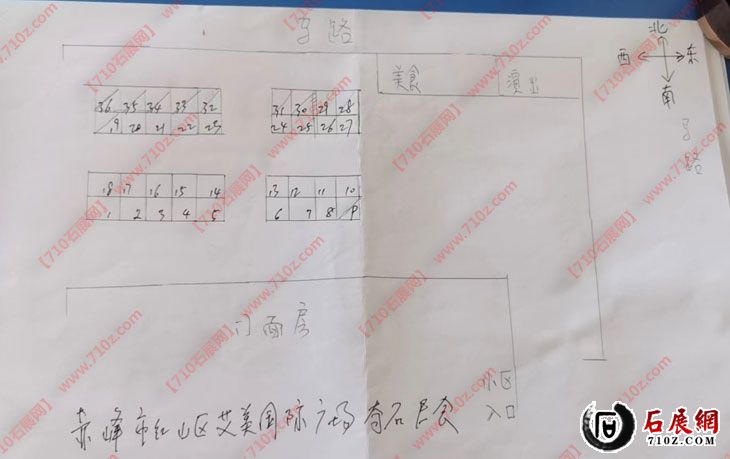 马路
北
西 东
南
马路
美食 演出
36 35 34 33 32 31 30 29 28
19 20 21 22 23 24 25 26 27
18 17 16 15 14 13 12 11 10
1 2 3 4 5 6 7 8 9
门面房
小区
入口
赤峰市红山区艾美国际广场奇石展
石展網
710z.com
【710石展网】 www.710z.com